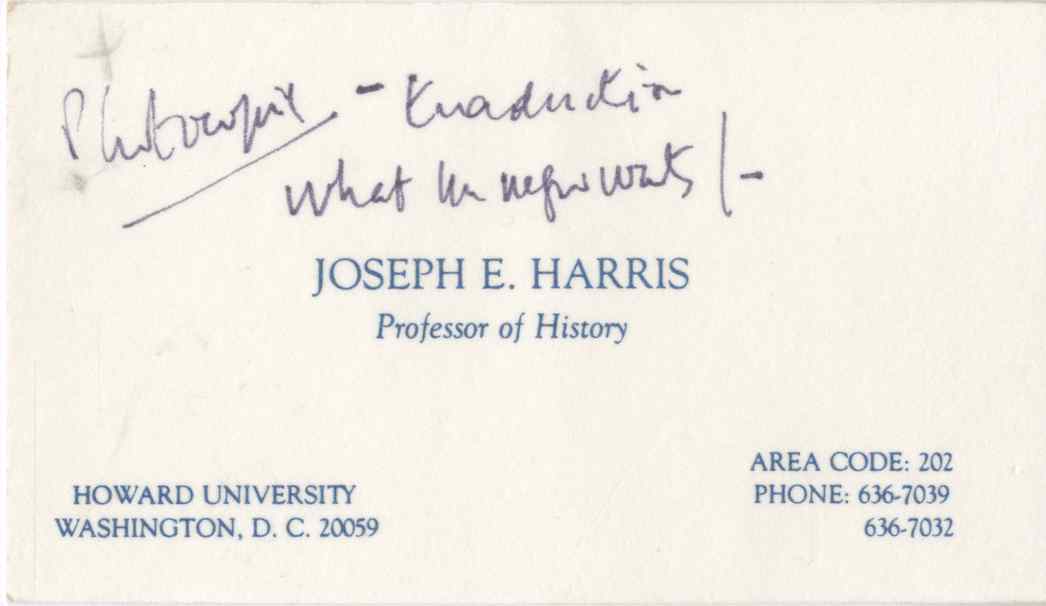 - traduction
what the negro wants /-
JOSEPH E. HARRIS
Professor of History
HOWARD UNIVERSITY
WASHINGTON, D. C. 20059
AREA CODE: 202
PHONE: 636-7039
636-7032